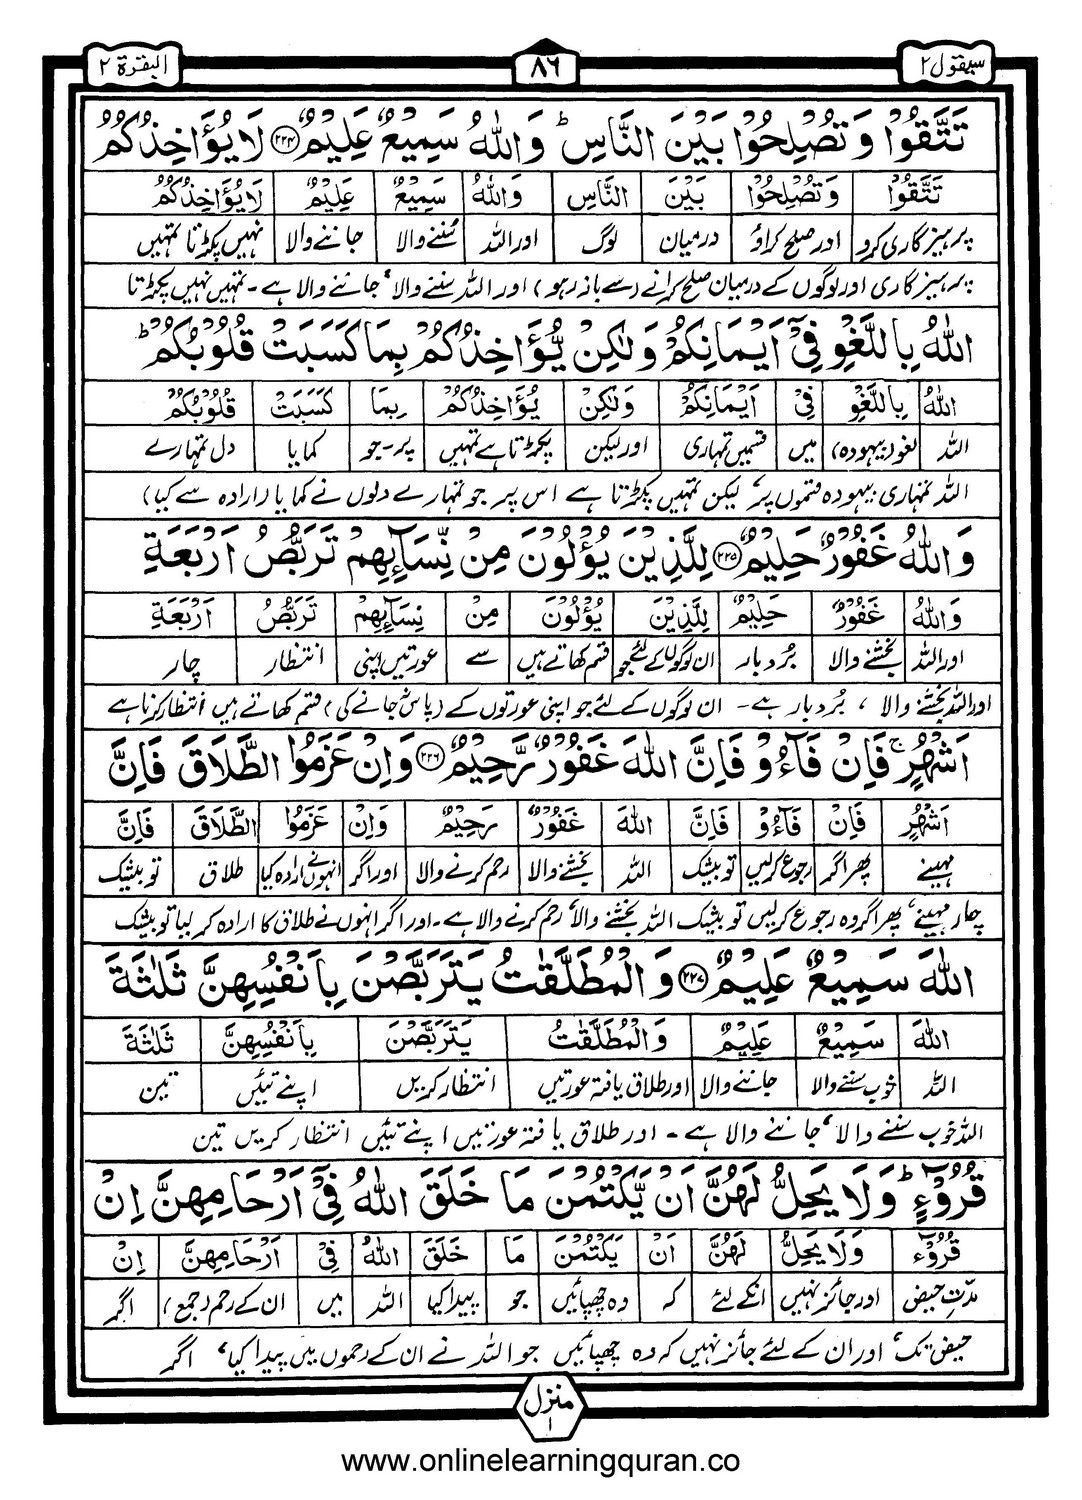 سيقول ٢
٨٦
البقرة ٢
تَتَّقُوْا وَتُصْلِحُوْا بَيْنَ النَّاسِ ؕ وَاللّٰهُ سَمِيْعٌ عَلِيْمٌ ﴿٢٢٤﴾ لَا يُؤَاخِذُكُمُ
تَتَّقُوْا وَتُصْلِحُوْا بَيْنَ النَّاسِ وَاللّٰهُ سَمِيْعٌ عَلِيْمٌ لَا يُؤَاخِذُكُمُ
پرہیزگاری کرو اور صلح کراؤ درمیان لوگ اور اللہ سُننے والا جاننے والا نہیں پکڑتا تمہیں
پرہیزگاری اور لوگوں کے درمیان صلح کرانے (سے باز رہو) اور اللہ سننے والا، جاننے والا ہے۔ تمہیں نہیں پکڑتا
اللّٰهُ بِاللَّغْوِ فِيْۤ اَيْمَانِكُمْ وَلٰكِنْ يُّؤَاخِذُكُمْ بِمَا كَسَبَتْ قُلُوْبُكُمْ ؕ
اللّٰهُ بِاللَّغْوِ فِيْٓ اَيْمَانِكُمْ وَلٰكِنْ يُؤَاخِذُكُمْ بِمَا كَسَبَتْ قُلُوْبُكُمْ
اللہ لغو (بیہودہ) میں قسمیں تمہاری اور لیکن پکڑتا ہے تمہیں پر۔جو کمایا دل تمہارے
اللہ تمہاری بیہودہ قسموں پر، لیکن تمہیں پکڑتا ہے اس پر جو تمہارے دلوں نے کمایا (ارادہ سے کیا)
وَاللّٰهُ غَفُوْرٌ حَلِيْمٌ ﴿٢٢٥﴾ لِلَّذِيْنَ يُؤْلُوْنَ مِنْ نِّسَآئِهِمْ تَرَبُّصُ اَرْبَعَةِ
وَاللّٰهُ غَفُوْرٌ حَلِيْمٌ لِلَّذِيْنَ يُؤْلُوْنَ مِنْ نِسَآئِهِمْ تَرَبُّصُ اَرْبَعَةِ
اور اللہ بخشنے والا بُردبار ان لوگوں کے لئے جو قسم کھاتے ہیں سے عورتیں اپنی انتظار چار
اور اللہ بخشنے والا، بُردبار ہے۔ ان لوگوں کے لئے جو اپنی عورتوں کے (پاس جانے کی) قسم کھاتے ہیں انتظار کرنا ہے
اَشْهُرٍ ۚ فَاِنْ فَآءُوْ فَاِنَّ اللّٰهَ غَفُوْرٌ رَّحِيْمٌ ﴿٢٢٦﴾ وَاِنْ عَزَمُوا الطَّلَاقَ فَاِنَّ
اَشْهُرٍ فَاِنْ فَآءُوْ فَاِنَّ اللّٰهَ غَفُوْرٌ رَحِيْمٌ وَاِنْ عَزَمُوا الطَّلَاقَ فَاِنَّ
مہینے پھر اگر رجوع کرلیں تو بیشک اللہ بخشنے والا رحم کرنے والا اور اگر انہوں نے ارادہ کیا طلاق تو بیشک
چار مہینے، پھر اگر وہ رجوع کرلیں تو بیشک اللہ بخشنے والا، رحم کرنے والا ہے۔ اور اگر انہوں نے طلاق کا ارادہ کرلیا تو بیشک
اللّٰهَ سَمِيْعٌ عَلِيْمٌ ﴿٢٢٧﴾ وَالْمُطَلَّقٰتُ يَتَرَبَّصْنَ بِاَنْفُسِهِنَّ ثَلٰثَةَ
اللّٰهَ سَمِيْعٌ عَلِيْمٌ وَالْمُطَلَّقٰتُ يَتَرَبَّصْنَ بِاَنْفُسِهِنَّ ثَلٰثَةَ
اللہ خوب سننے والا جاننے والا اور طلاق یافتہ عورتیں انتظار کریں اپنے تئیں تین
اللہ خوب سننے والا، جاننے والا ہے۔ اور طلاق یافتہ عورتیں اپنے تئیں انتظار کریں تین
قُرُوْٓءٍ ؕ وَلَا يَحِلُّ لَهُنَّ اَنْ يَّكْتُمْنَ مَا خَلَقَ اللّٰهُ فِيْۤ اَرْحَامِهِنَّ اِنْ
قُرُوْٓءٍ وَلَا يَحِلُّ لَهُنَّ اَنْ يَكْتُمْنَ مَا خَلَقَ اللّٰهُ فِيْٓ اَرْحَامِهِنَّ اِنْ
مدّتِ حیض اور جائز نہیں انکے لئے کہ وہ چھپائیں جو پیدا کیا اللہ میں ان کے رحم (جمع) اگر
حیض تک، اور ان کے لئے جائز نہیں کہ وہ چھپائیں جو اللہ نے ان کے رحموں میں پیدا کیا، اگر
منزل ١
www.onlinelearningquran.co